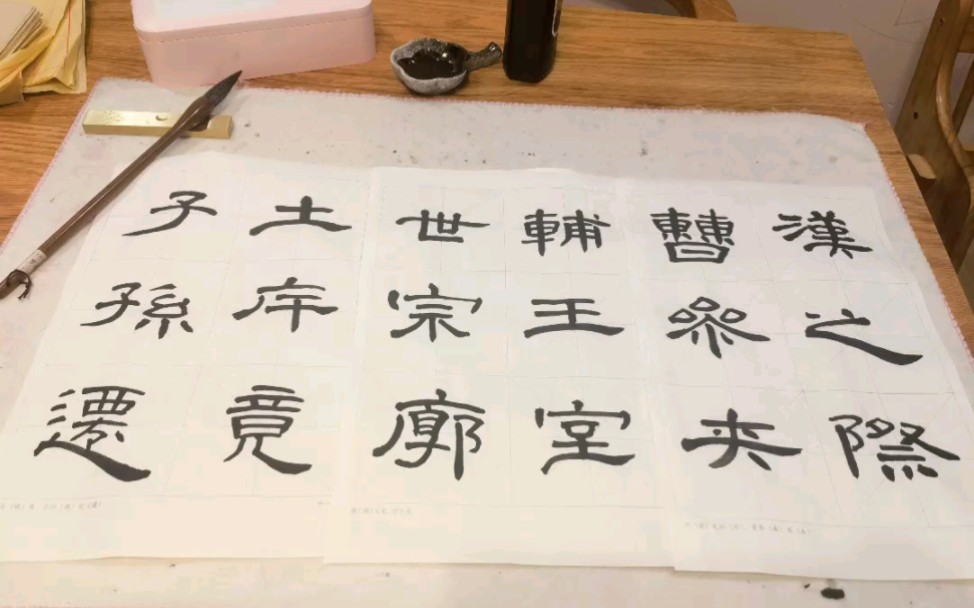 漢之際
曹參夾
輔王室
世宗廓
土斥竟
子孫遷